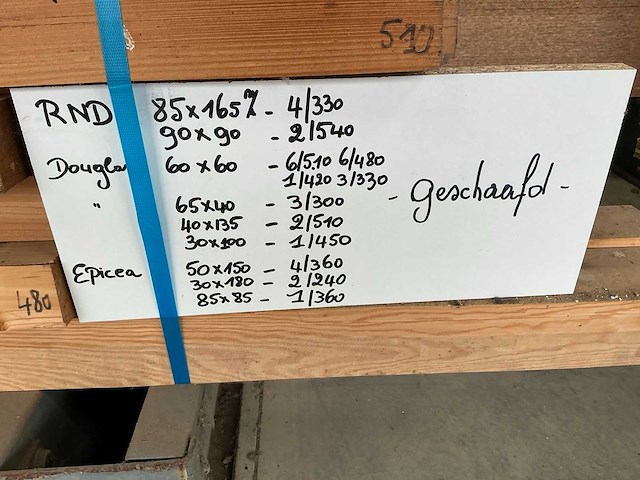 510
RND 85x165 m/m - 4/330
90x90 - 2/540
Douglas 60x60 - 6/510 6/480
1/420 3/330
" 65x40 - 3/300
- geschaafd -
40x135 - 2/510
30x100 - 1/450
Epicea 50x150 - 4/360
30x180 - 2/240
85x85 - 1/360
480